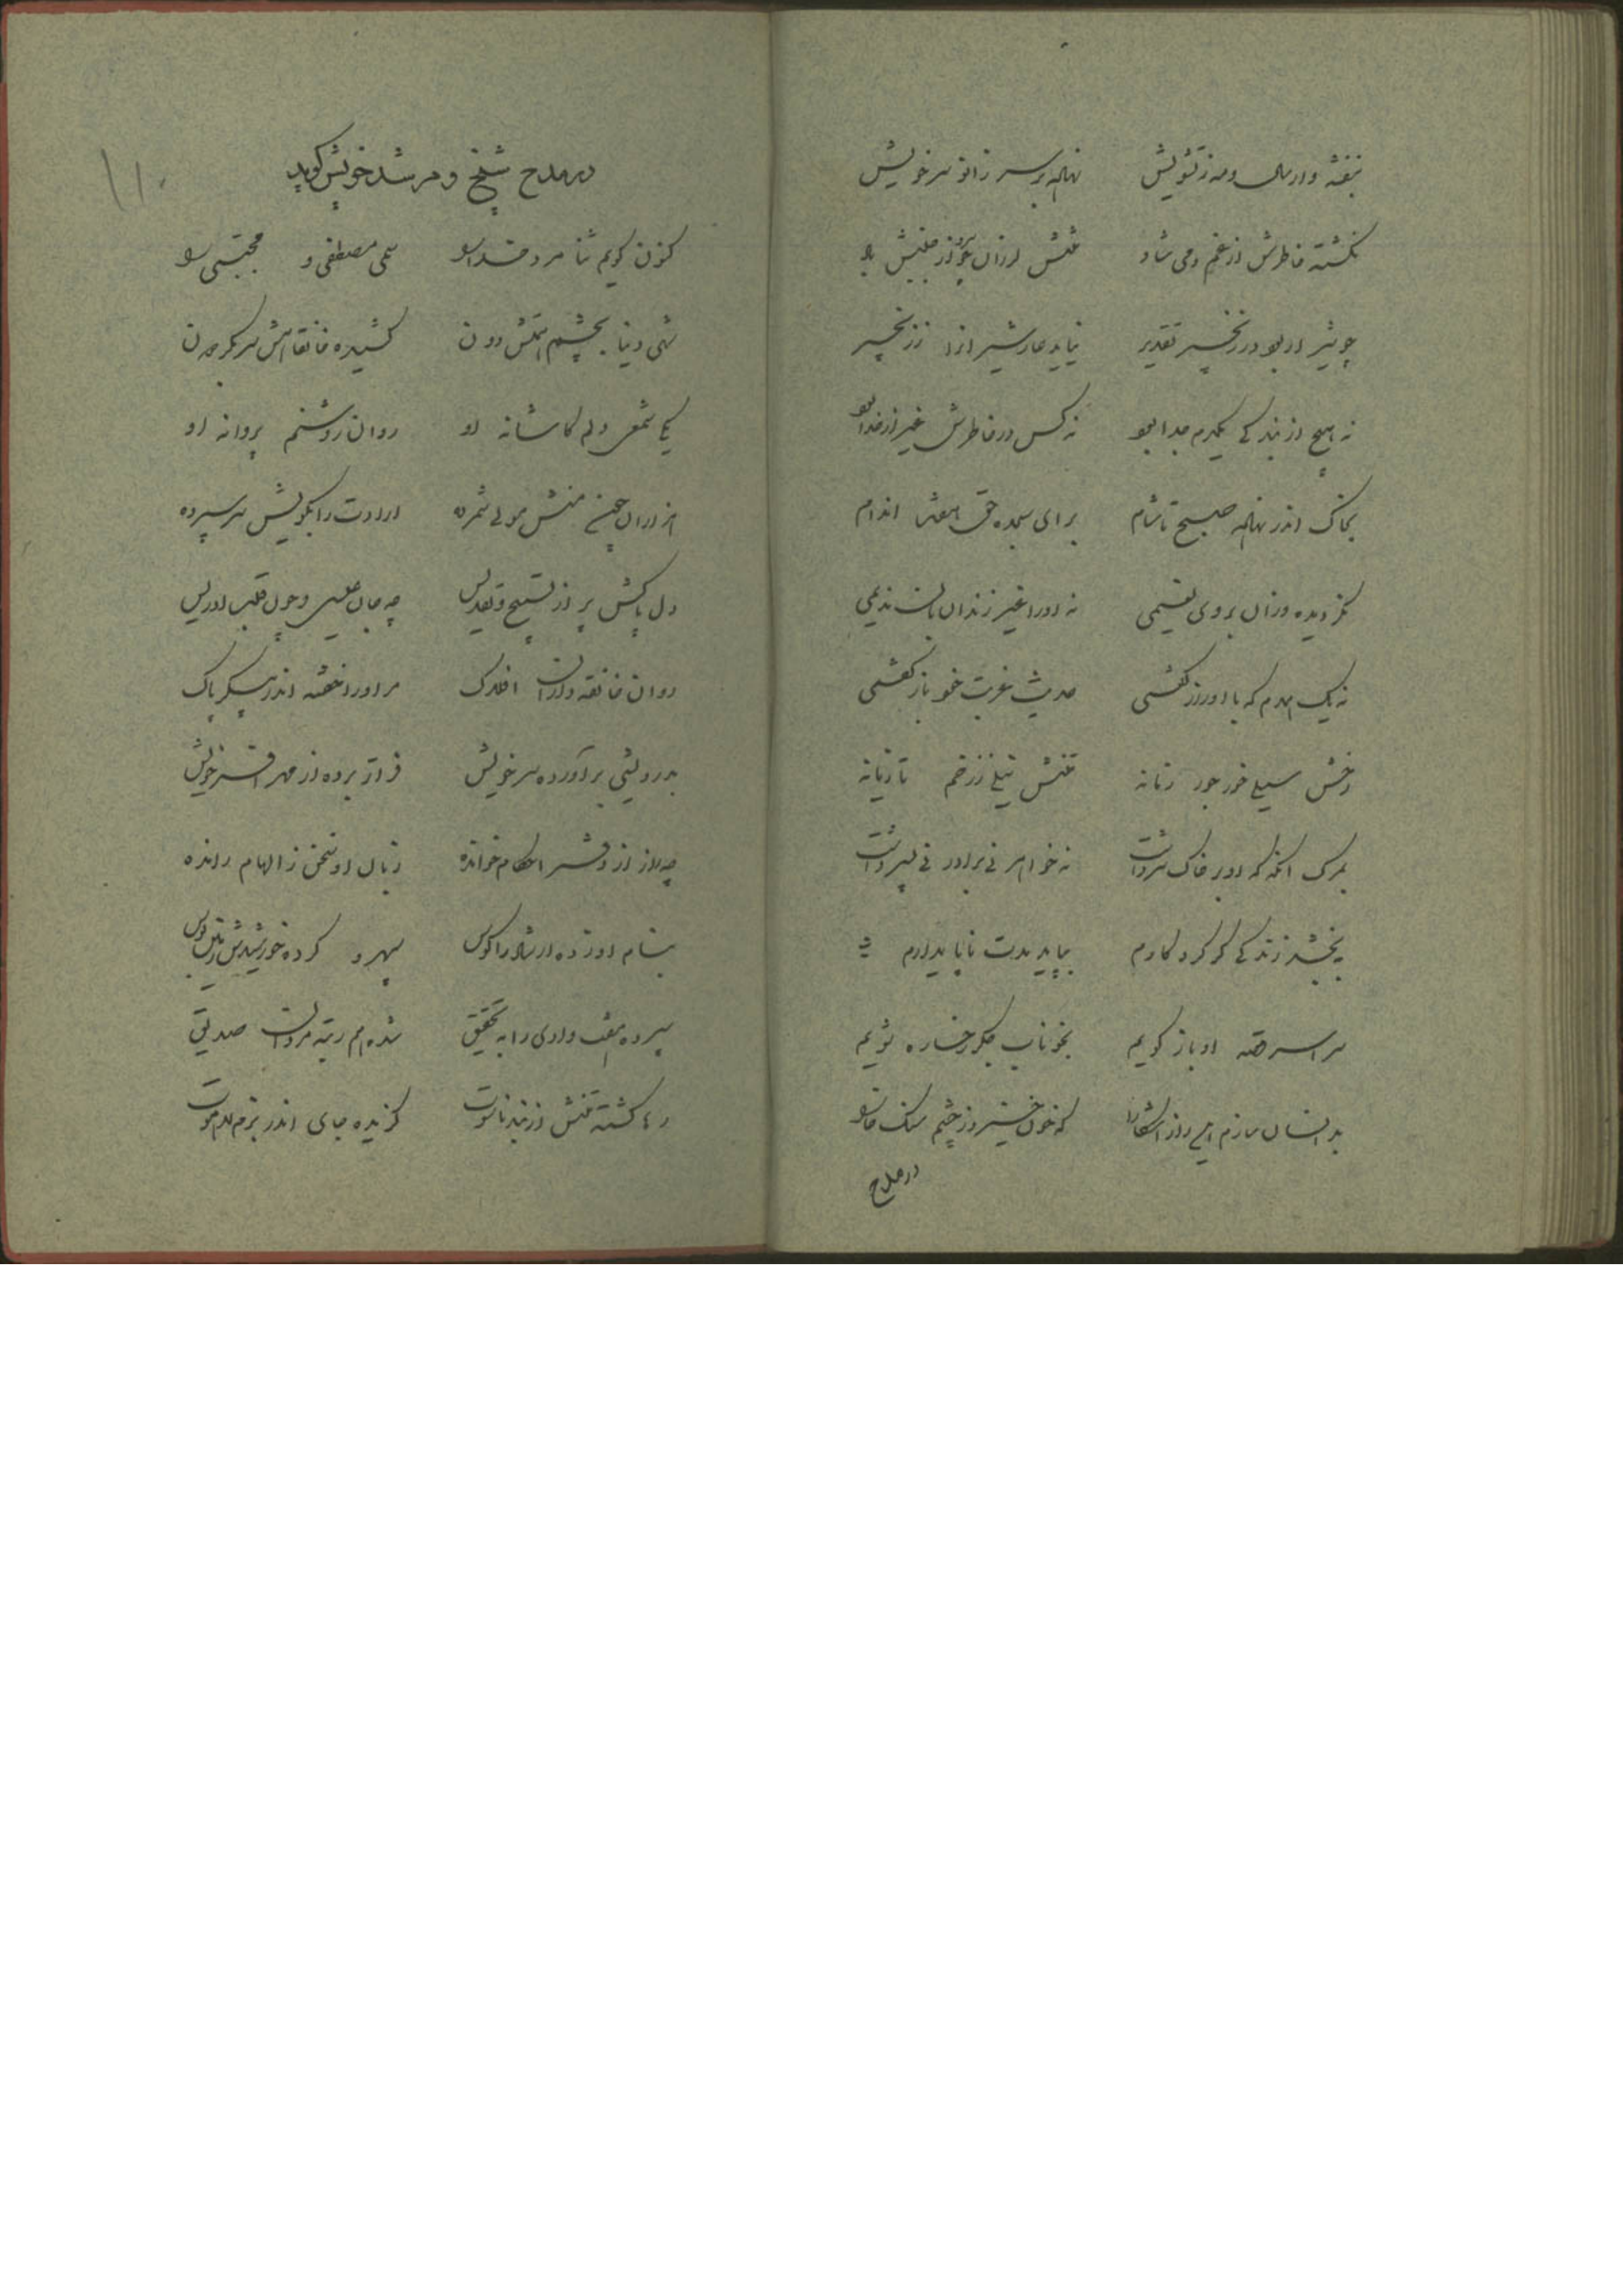 بنفشه وار سال و مه ز تشویش نهاده بر سر زانو سر خویش
نگشته خاطرش از غم دمی شاد تنش لرزان چو از جنبش
چو شیر ار بود در زنجیر تقدیر نیاید عار شیران را ز زنجیر
نه هیچ از بندگی یکدم جدا بود نه کس در خاطرش غیر از خدا بود
بخاک اندر نهاده صبح تا شام برای سجده حق هفت اندام
نه او را غیر زندان بان ندیمی
نه یک همدم که با او راز گفتی حدیث غربت خود باز گفتی
رخش سیلی خور جور زمانه تنش نیلی ز زخم تازیانه
بمرگ آنکه که او بر خاک سر داشت نه خواهر نی برادر نی پسر داشت
ببخشد زندگی گر کردگارم بپاید مدت ناپایدارم
سراسر قصه او باز گویم بخوناب جگر رخساره شویم
بد انسان سازم این راز آشکارا که خون خیزد ز چشم سنگ خارا
در مدح
در مدح شیخ و مرشد خویش گوید
کنون گویم ثنا مرد خدا را سمی مصطفی و مجتبی را
شهی دنیا بچشم همتش دون کشیده خانقاهش سر بگردون
یکی شمعی دلم کاشانه او روان روشنم پروانه او
هزاران چون منش مولی شمرده ارادت را بکویش سر سپرده
دل پاکش پر از تسبیح و تقدیس چه جان عیسی و چون قلب ادریس
روان خانقه دارای افلاک مر او را خفته اندر پیکر پاک
بدرویشی برآورده سر خویش فراتر برده از مهر افسر خویش
چه راز از دفتر احکام خوانده زبان او سخن ز الهام رانده
بنام او زده ارشاد را کوس سپهر و کرده خورشیدش زمین بوس
سپرده هفت وادی را به تحقیق شده هم رتبه مردان صدیق
رها گشته تنش از بند ناسوت گزیده جای اندر بزم لاهوت